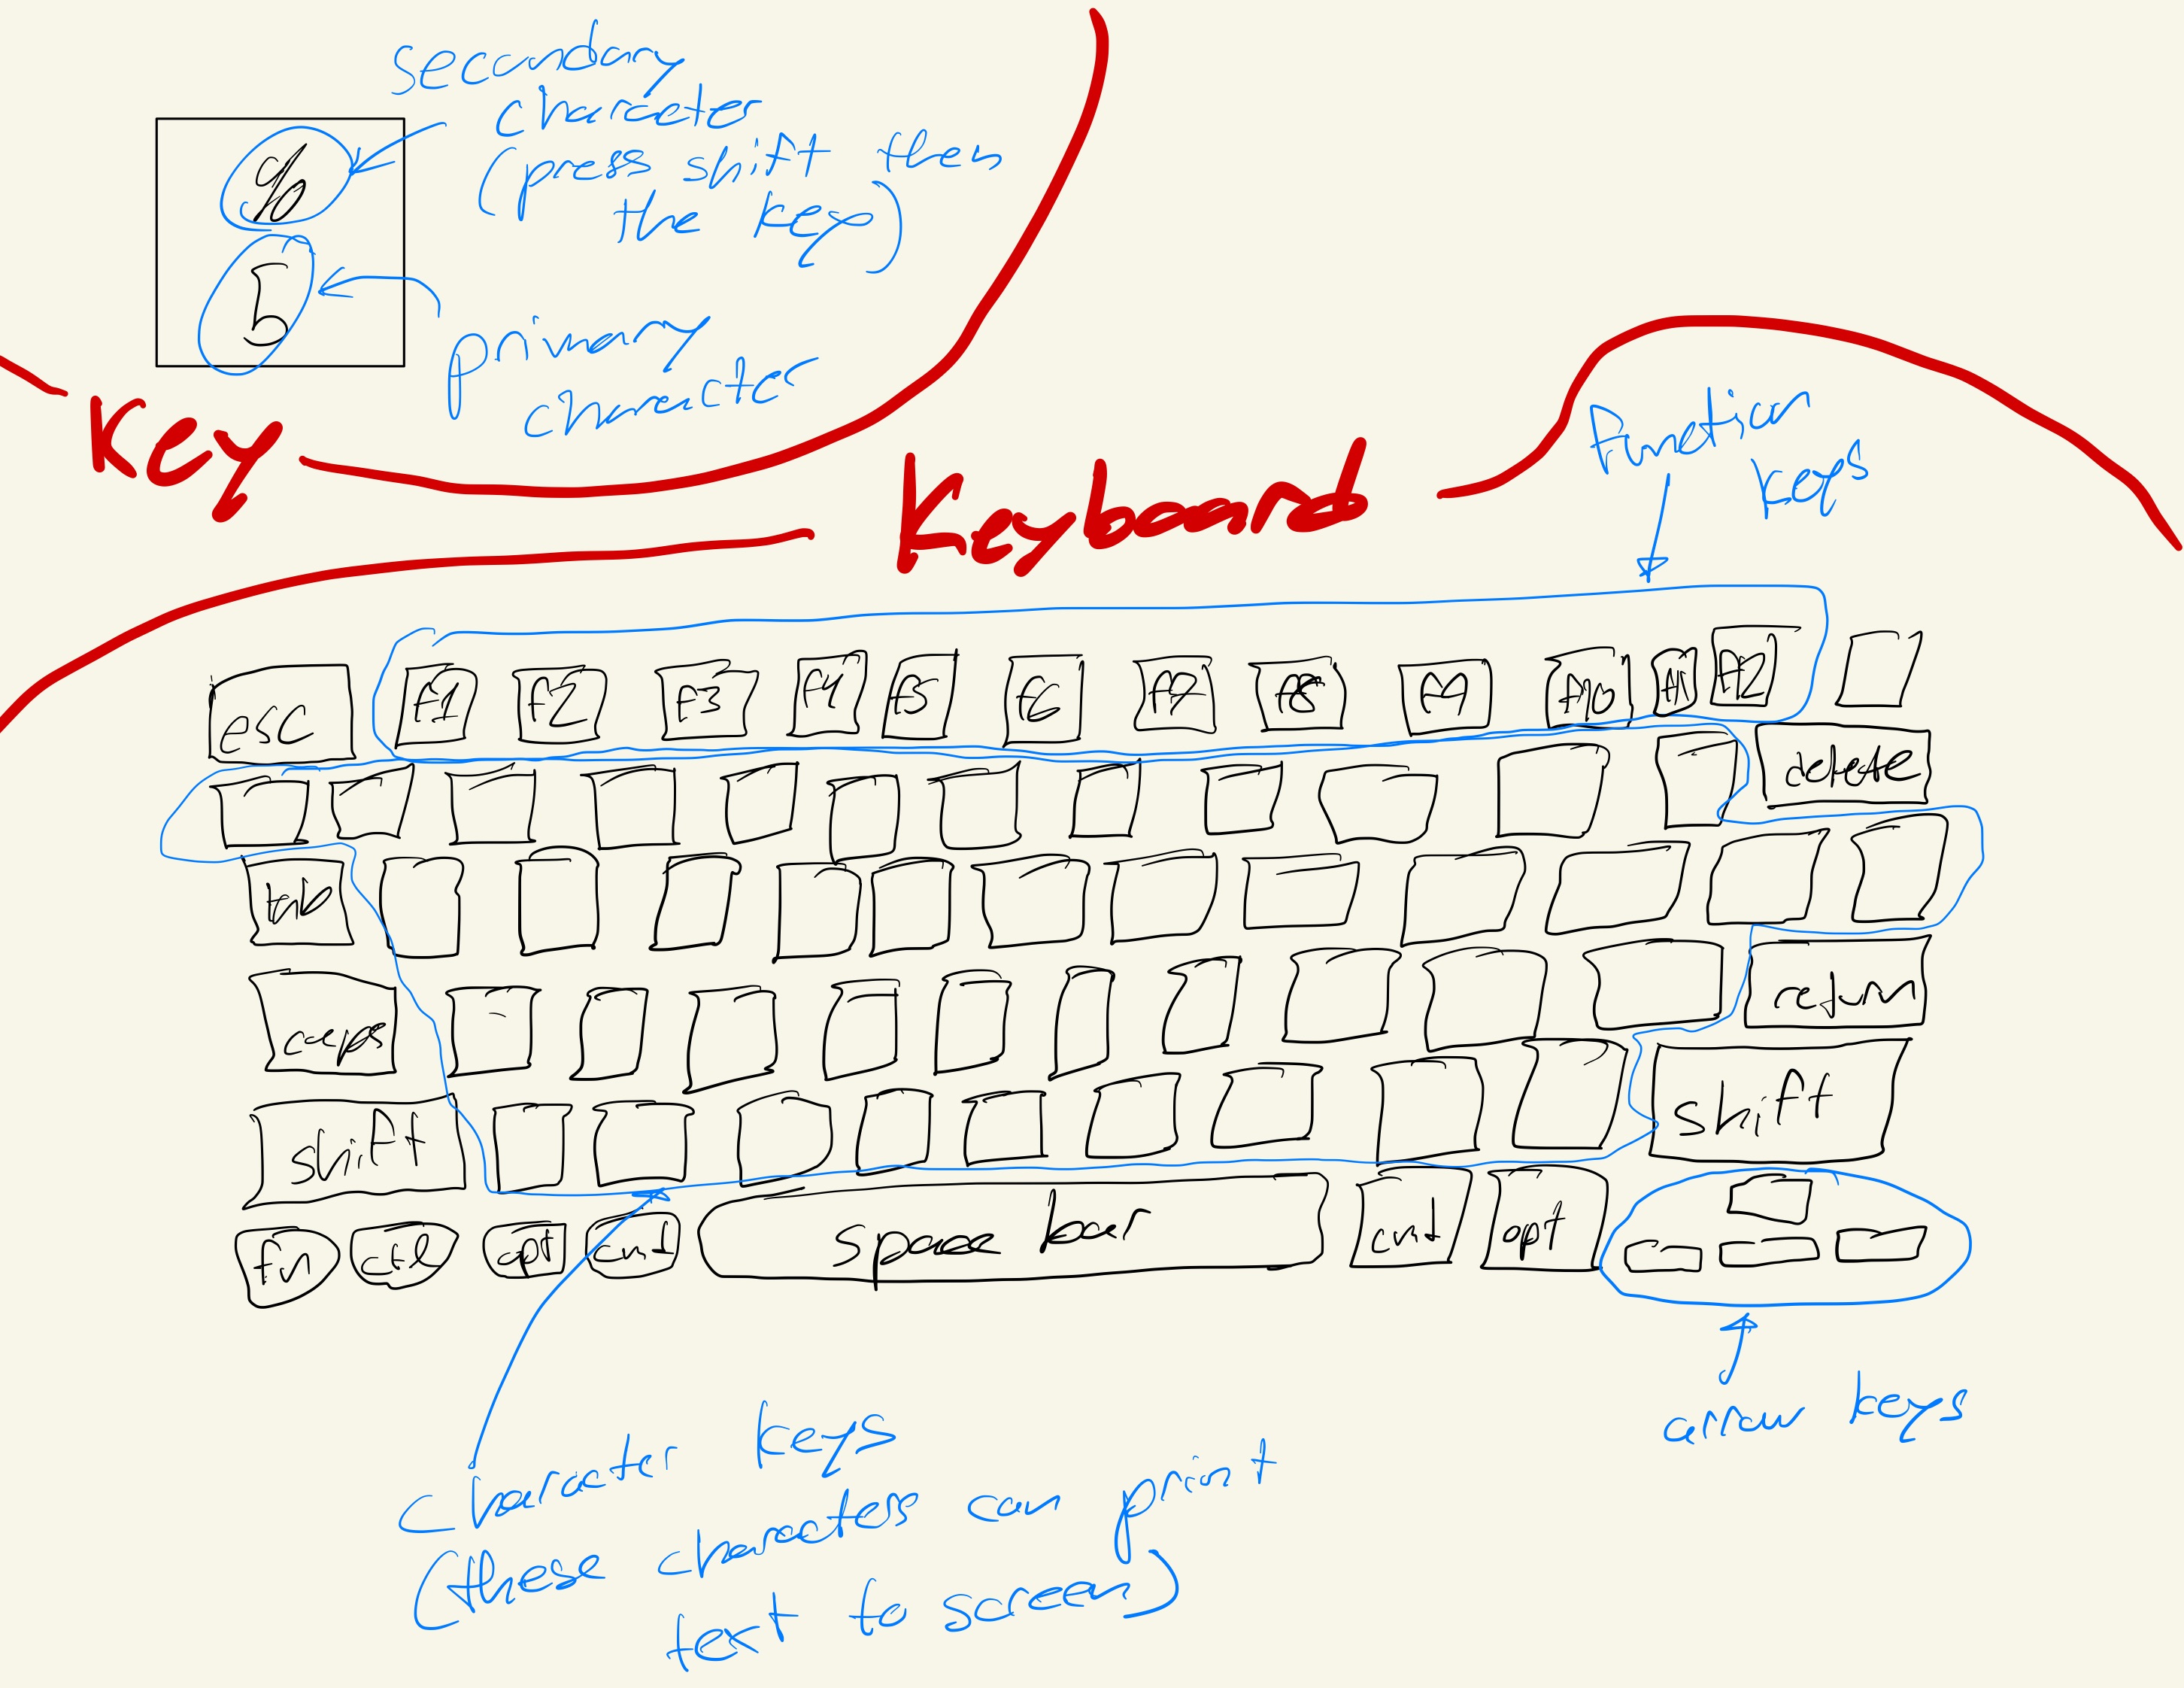 secondary
character
(press shift then
the key)
%
5
primary
character
Key
Keyboard
function
keys
esc f1 f2 f3 f4 f5 f6 f7 f8 f9 f10 f11 f12
delete
tab
caps return
shift shift
fn ctl opt cmd space bar cmd opt
arrow keys
Character keys
(these characters can print
text to screen)